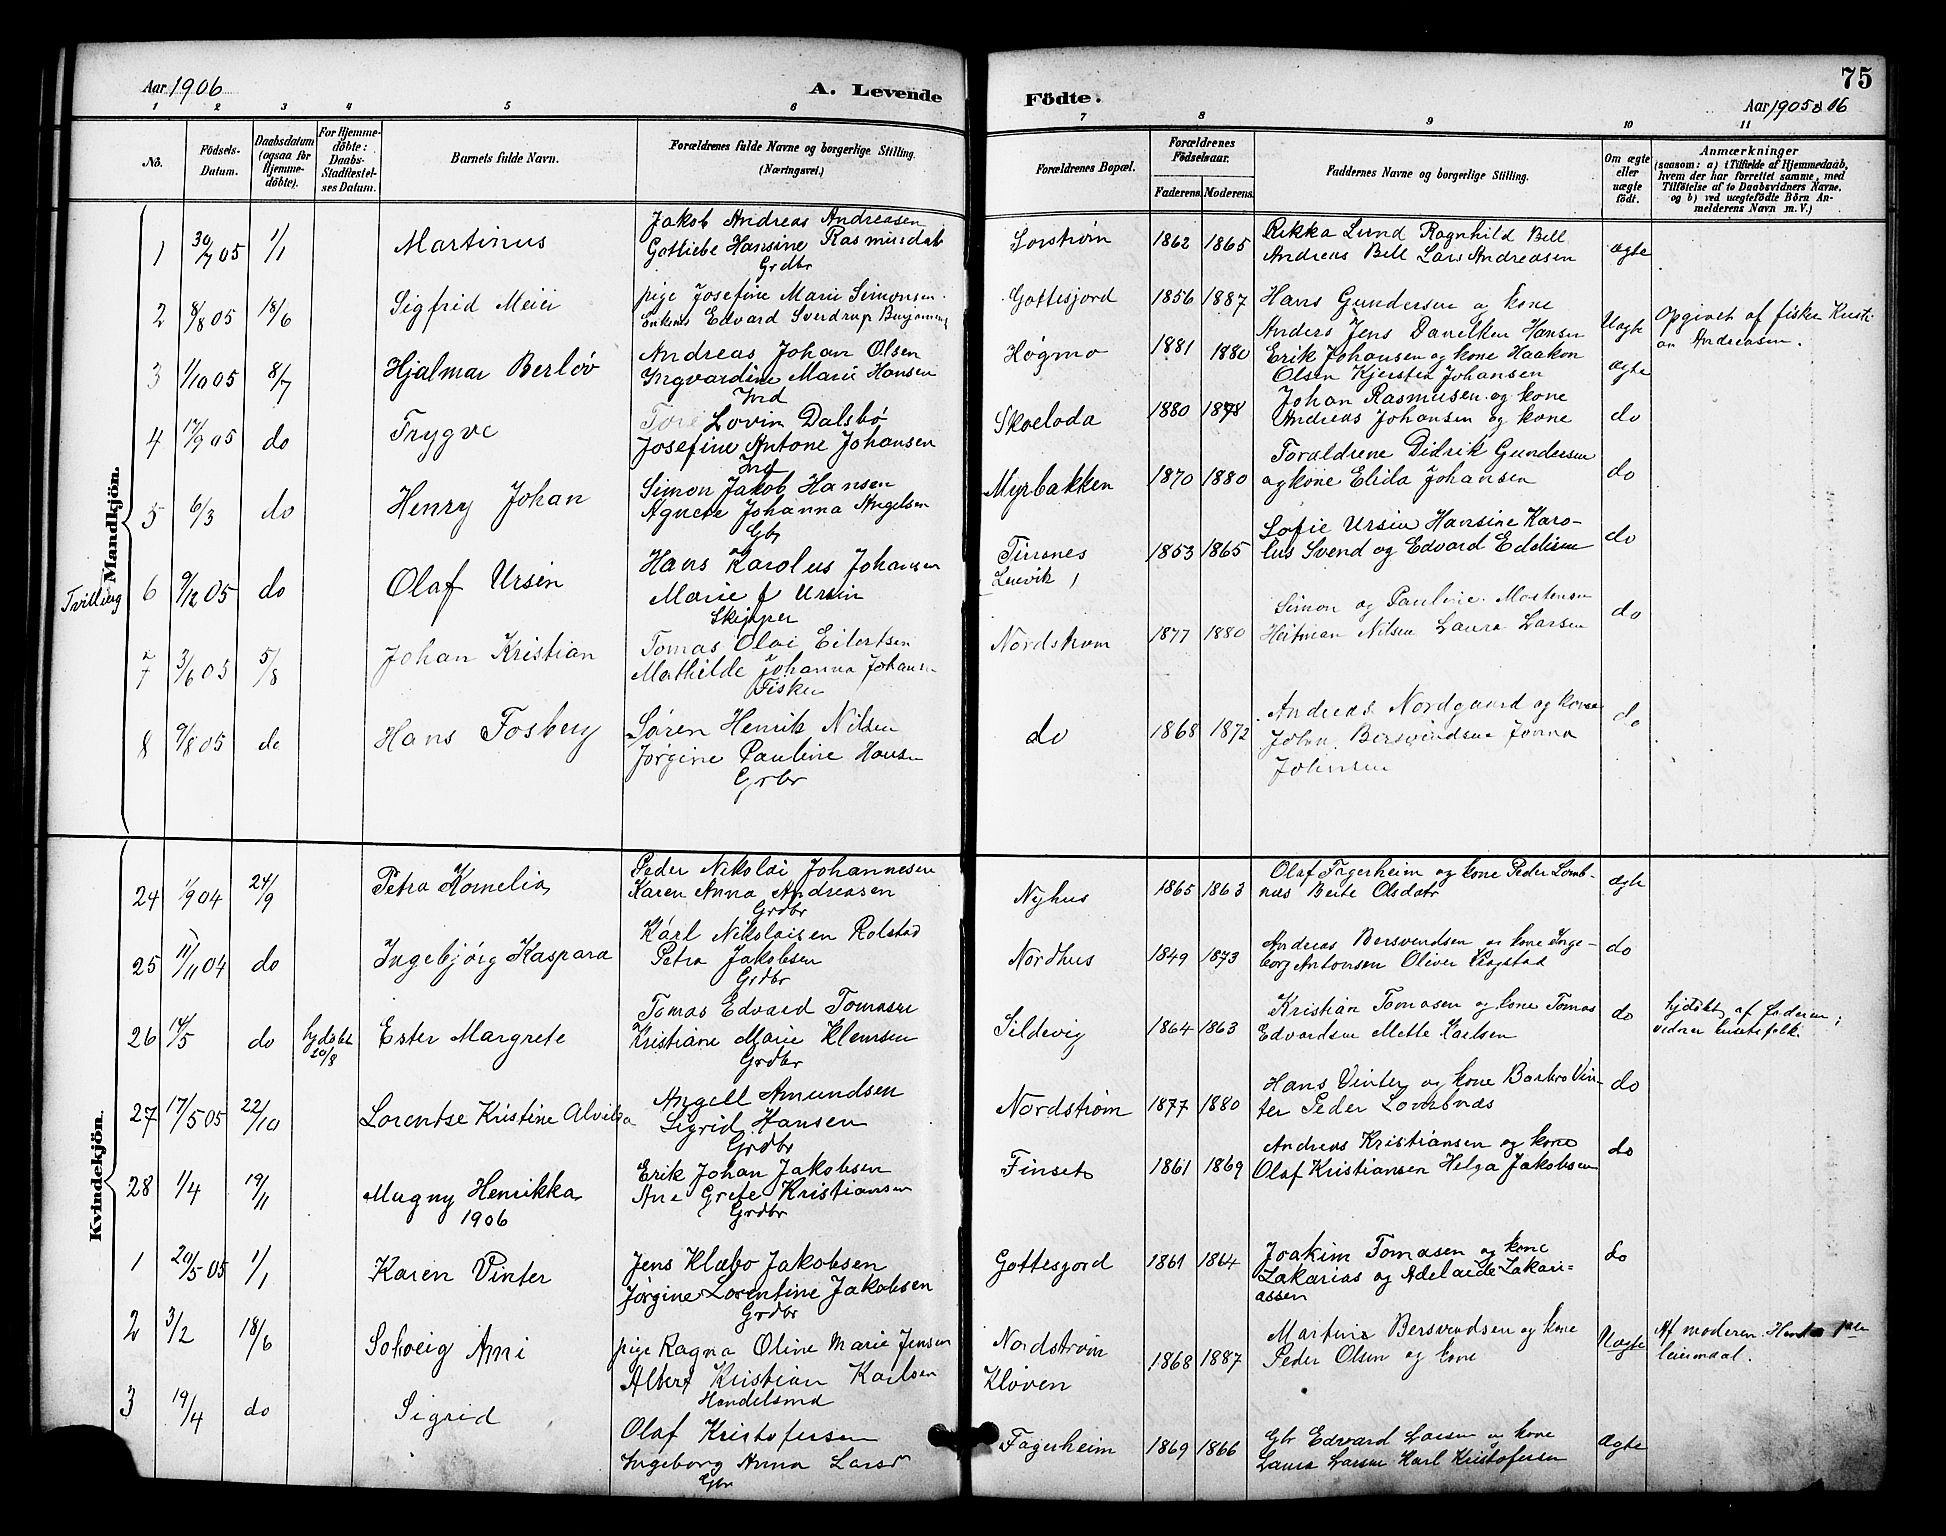 Aar 1906
A. Levende Födte.
75
Aar 1905 & 06
1 2 3 4 5 6 7 8 9 10 11
No.
Födsels-Datum.
Daabsdatum (ogsaa for Hjemme-döbte).
For Hjemme-döbte: Daabs-Stadfestel-ses Datum.
Barnets fulde Navn.
Forældrenes fulde Navne og borgerlige Stilling. (Næringsvei.)
Forældrenes Bopæl.
Forældrenes Födselsaar.
Faderens. Moderens.
Faddernes Navne og borgerlige Stilling.
Om ægte eller uægte födt.
Anmærkninger
(saasom: a) i Tilfælde af Hjemmedaab,
hvem der har forrettet samme, med
Tilföielse af to Daabsvidners Navne.
og b) ved uægtefödte Börn An-
melderens Navn m. V.)
Mandkjön.
1 30/7 05 1/1 Martinus
Jakob Andreas Andreasen
Gotliebe Hansine Rasmusdat
Grdbr
Sorstrøm 1862 1865
Rikka Lund Ragnhild Bell
Andreas Bell Lars Andreasen
ægte
2 8/8 05 18/6 Sigfrid Meier
pige Josefine Marie Simonsen
Enkem. Edvard Sverdrup
Gottesjord 1856 1887
Hans Gundersen og kone
Anders Jens Hansen
Uægte
Opgivet af fisker Kristi-
an Andreasen.
3 1/10 05 8/7 Hjalmar Berløv
Andreas Johan Olsen
Ingvardine Marie Hansen
Ind
Høgmo 1881 1880
Erik Johansen og kone Haakon
Olsen Kjerstia Johansen
ægte
4 17/9 05 do Trygve
Tore Lovin Dalsbø
Josefine Antone Johansen
Ind
Skoeloda 1880 1878
Johan Rasmusen og kone
Andreas Johansen og kone
do
5 6/3 do Henry Johan
Simon Jakob Hansen
Agnete Johanna Angelsen
Gbr
Myrbakken 1870 1880
Foraldrene Didrik Gundersen
og kone Elida Johansen
do
Tvilling 6 9/12 05 do Olaf Ursin
Hans Karolus Johansen
Marie f Ursin
Skipper
Finsnes
1853 1865
Sofie Ursin Hansine Karo-
lus Svend og Edvard
do
7 3/6 05 5/8 Johan Kristian
Tomas Olai Eilertsen
Mathilde Johanna Johansen
Fisker
Nordstrøm 1877 1880
Simon og Pauline Mortensen
Hartman Nilsen Laura Larsen
do
8 9/8 05 do Hans Fosberg
Søren Henrik Nilsen
Jørgine Pauline Hansen
Grbr
do 1868 1872
Andreas Nordgaard og kone
John Bersvendsen Jonna
Johnsen
do
Kvindekjön.
24 1/9 04 24/9 Petra Kornelia
Peder Nikolai Johannesen
Karen Anna Andreasen
Grdbr
Nyhus 1865 1863
Olaf Fagerheim og kone Peder Lomb-
næs Berte Olsdatr
ægte
25 11/11 04 do Ingebjørg Kaspara
Karl Nikolaisen Rolstad
Petra Jakobsen
Grdbr
Nordhus 1849 1873
Andreas Bersvendsen og kone Inge-
borg Antonsen Oliver Rogstad
do
26 14/5 do hjdøbt 20/8 Ester Margrete
Tomas Edvard Tomasen
Kristiane Marie Klemsen
Grdbr
Sildevig 1864 1863
Kristian Tomasen og kone Tomas
Edvardsen Mette Karlsen
do
hjdøbt af faderen;
vidner husetsfolk.
27 17/5 05 22/10 Lorentse Kristine Alvilda
Angell Amundsen
Sigrid Hansen
Grdbr
Nordstrøm 1877 1880
Hans Vinter og kone Barbro Vin-
ter Peder Lombnæs
do
28 1/4 19/11 Magny Henrikka
Erik Johan Jakobsen
Ane Grete Kristiansen
Grdbr
Finset 1861 1869
Andreas Kristiansen og kone
Olaf Kristiansen Helga Jakobsen
do
1906
1 20/5 05 1/1 Karen Vinter
Jens Klæbo Jakobsen
Jørgine Lorentine Jakobsen
Grdbr
Gottesjord 1861 1864
Joakim Tomasen og kone
Zakarias og Adelaide Zakari-
assen
do
2 3/2 18/6 Solveig Ami
pige Ragna Oline Marie Jensen
Albert Kristian Karlsen
Handelsmd
Nordstrøm
Kløven
1868 1887
Martine Bersvendsen og kone
Peder Olsen og kone
Uægte
Af moderen. Hendes 1ste
leiermaal.
3 19/4 do Sigrid
Olaf Kristofersen
Ingeborg Anna Larsd
Gbr
Fagerheim 1869 1866
Gbr Edvard Larsen og kone
Laura Larsen Karl Kristofersen
Ægte